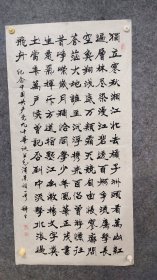 獨立寒秋湘江北去橘子洲頭看萬山紅
遍層林盡染漫江碧透百舸爭流鷹擊長
空魚翔淺底萬類霜天競自由悵寥廓問
蒼茫大地誰主沉浮攜來百侶曾遊憶往
昔崢嶸歲月稠恰同學少年風華正茂書
生意氣揮斥方遒指點江山激揚文字糞
土當年萬戶侯曾記否到中流擊水浪遏
飛舟 紀念中國共產黨九十華誕書毛澤東詞